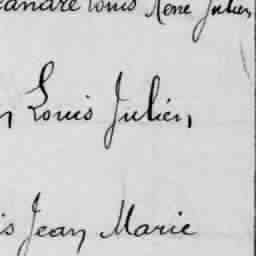 Louis René Julien
Louis Julien,
Jean Marie